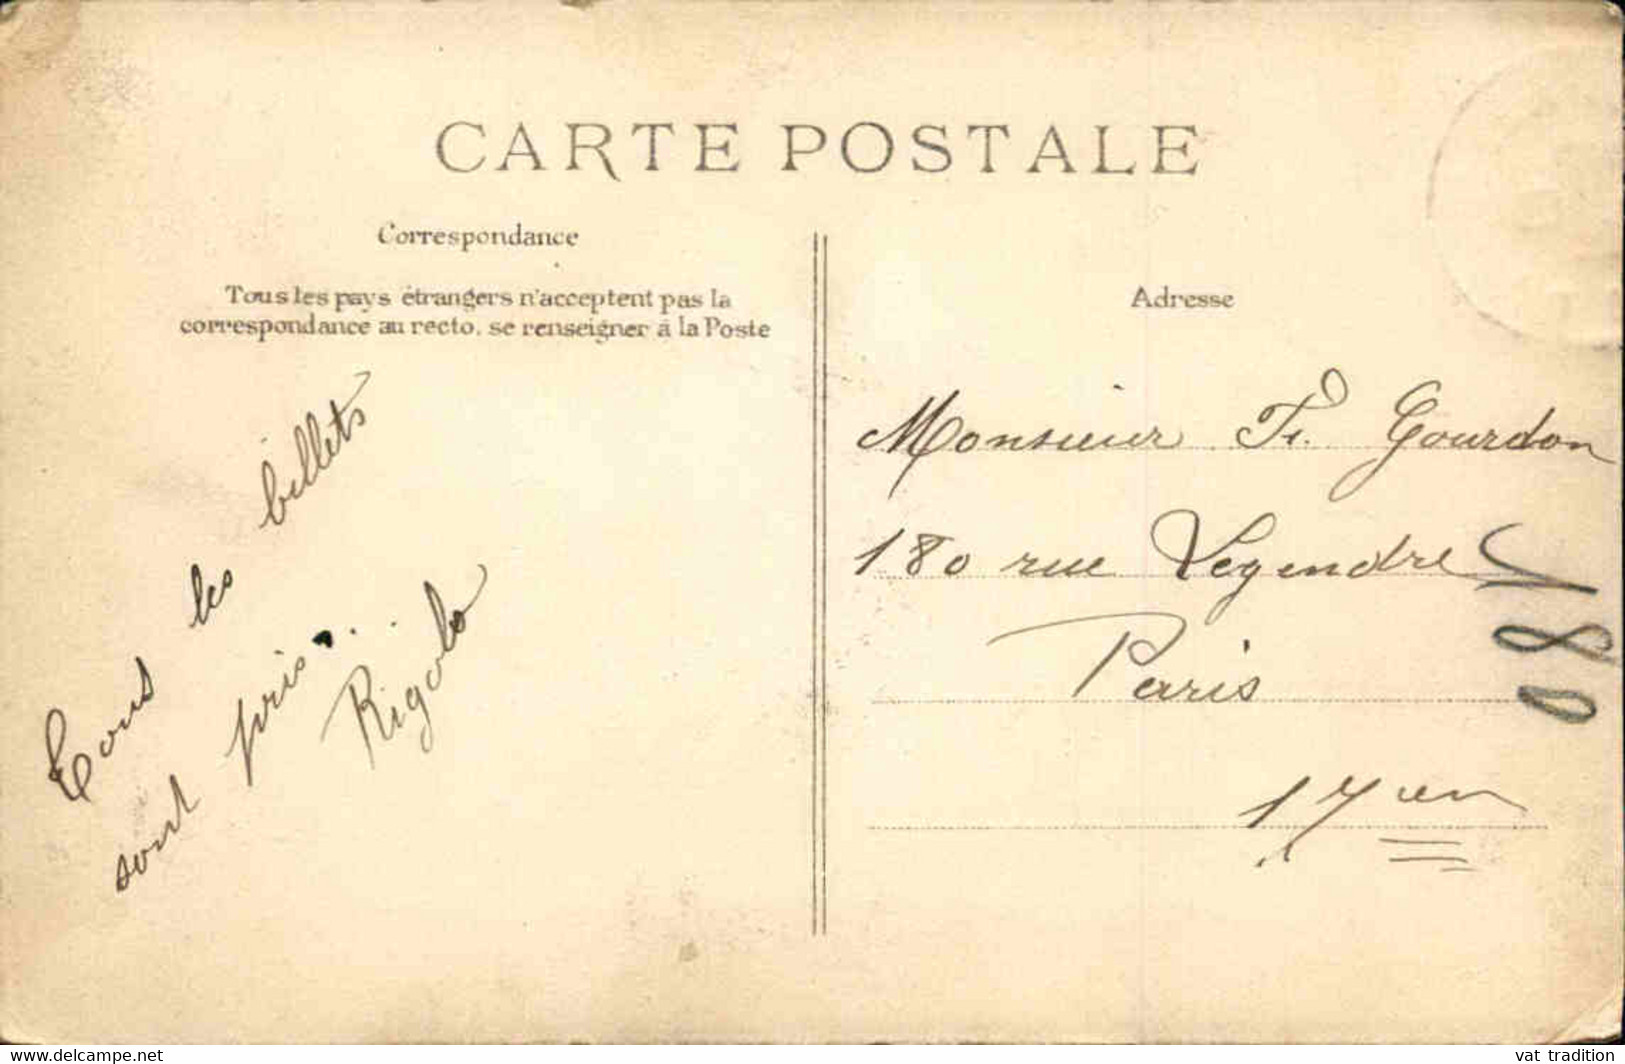 CARTE POSTALE
Correspondance
Tous les pays étrangers n'acceptent pas la
correspondance au recto, se renseigner à la Poste
Tous les billets
sont pris...
Rigolo
Adresse
Monsieur Fr. Gourdon
180 rue Legendre
Paris
17 em
180
www.delcampe.net
vat_tradition